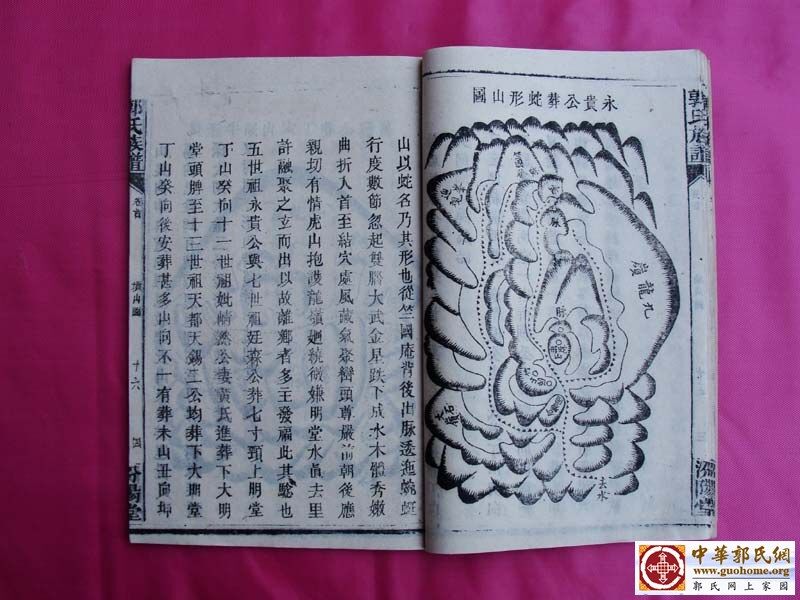 郭氏族譜
汾陽堂
永貴公葬蛇形山圖
九龍嶺
去水
山以蛇名乃其形也從竺國庵背後出脉透迤蜿蜒
行度數節忽起雙腦太武金星跌下成水木體秀嫩
曲折人首至結穴處風藏氣聚巒頭尊嚴前朝後應
親切有情虎山抱護龍嶺廻繞微嫌明堂水眞去里
許融聚之玄而出以故離鄉者多主發福此其驗也
五世祖永貴公與七世祖廷森公葬七寸頸上明堂
丁山癸向十一世祖妣時然公妻黃氏進葬下大明
堂頭脾至十三世祖天都天錫二公均葬下大明堂
丁山癸向後安葬甚多山向不一有葬未山丑向坤
郭氏族譜
卷首
墳山圖
十六
汾陽堂
中華郭氏網
www.guohome.org
郭氏网上家园